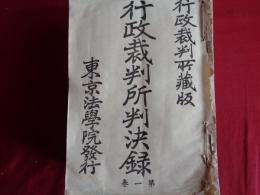 行政裁判所藏版
行政裁判所判決録
第一卷
東京法學院發行